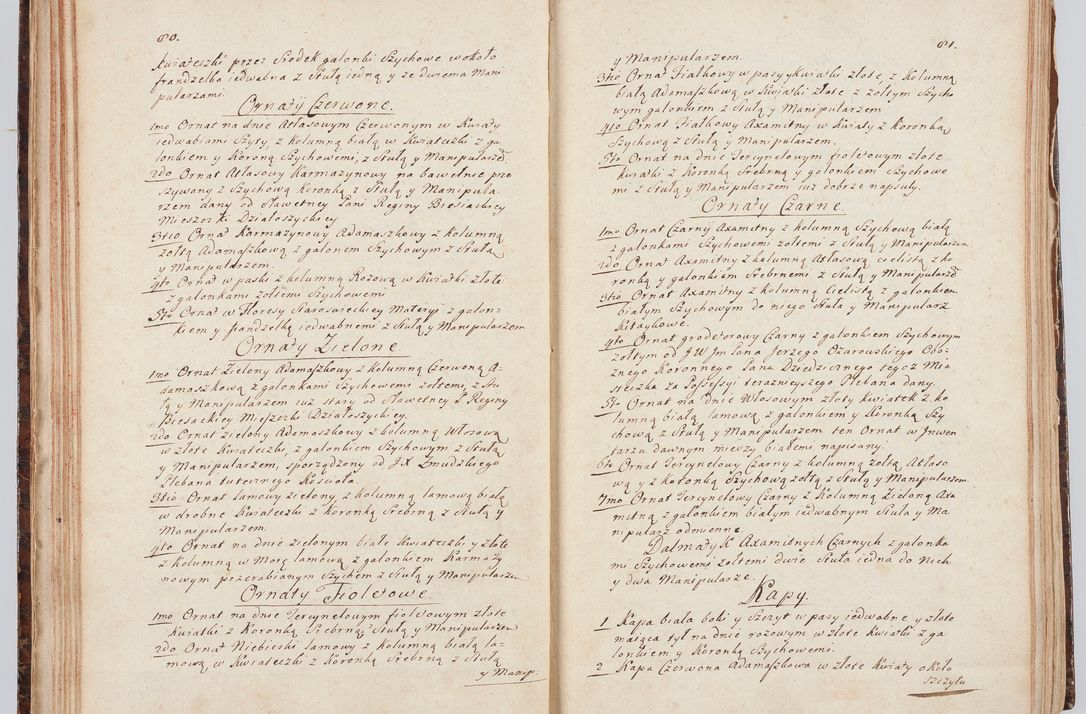 80.
kwiateczki przez Srodek galonki Szychowe wokoło
frandzelka iedwabna z Stułą iedną y ze dwiema Mani
pularzami.
Ornaty Czerwone.
1mo Ornat na dnie Atłasowym Czerwonym w Kwiaty
iedwabiami Szyty, z kolumną białą w Kwiateczki z ga
lonkiem y Koroną Szychowemi, z Stułą y Manipularzem
2do Ornat Atłasowy Karmazynowy na bawełnie prze
szywany z Szychową Koronką z Stułą y Manipula
rzem dany od Sławetney Pani Reginy Biesiackiey
Mieszczki Działoszyckiey
3tio Ornat Karmazynowy Adamaszkowy z kolumną
żołtą Adamaszkową z galonem Szychowym z Stułą
y Manipularzem.
4to Ornat w paski z kolumną Rożową w Kwiatki złote
z galonkami żołtemi Szychowemi
5to Ornat w Floresy Staroswieckiey Materyi z galon:
kiem y frandzelką iedwabnemi z Stułą y Manipularzem
Ornaty Zielone.
1mo Ornat Zielony Adamaszkowy z kolumną Czerwoną A-
damaszkową z galonkami Szychowemi żołtemi, z Stu
łą y Manipularzem iuż stary od Sławetney P. Reginy
Biesiackiey Mieszczki Działoszyckiey.
2do Ornat zielony Adamaszkowy z kolumną Włosową
w złote Kwiateczki, z galonkiem Szychowym z Stułą
y Manipularzem, sporządzony od J.X. Zmudzkiego
Plebana tutecznego Kościoła.
3tio Ornat lamowy zielony, z kolumną lamową białą
w drobne Kwiateczki z Koronką Srebrną z Stułą y
Manipularzem.
4to Ornat na dnie zielonym białe kwiateczki y złote
z kolumną w Morę lamową z galonkiem Karmazy
nowym przerabianym Szychem z Stułą y Manipularzem
Ornaty Fioletowe.
1mo Ornat na dnie Tercynelowym fioletowym złote
Kwiatki z Koronką Srebrną z Stułą y Manipularzem
2do Ornat Niebieski lamowy z kolumną białą la-
mową w Kwiateczki z Koronką Srebrną z Stułą
y Manip:
81.
y Manipularzem.
3tio Ornat Fiałkowy w pasy y Kwiatki złote, z kolumną
białą Adamaszkową w Kwiatki złote z żołtym Szycho
wym galonkiem z Stułą y Manipularzem
4to Ornat Fiałkowy Axamitny w Kwiaty z Koronką
Szychową z Stułą y Manipularzem.
5to Ornat na dnie Tercynelowym fioletowym złote
kwiatki z Koronką Srebrną y galonkiem Szychowe
mi z Stułą y Manipularzem iuż dobrze napsuty.
Ornaty Czarne.
1mo Ornat Czarny Axamitny z kolumną Szychową białą
z galonkami Szychowemi żołtemi z Stułą y Manipularzem
2do Ornat Axamitny z kolumną Atłasową cielistą z ko
ronką y galonkiem Srebrnemi z Stułą y Manipularzem
3tio Ornat Axamitny z kolumną Cielistą z galonkiem
białym Szychowym do niego Stuła y Manipularz
Kitaykowe.
4to Ornat grodetorowy Czarny z galonkiem Szychowym
żołtym od JWJmPana Jerzego Ozarowskiego Obo-
znego Koronnego Pana Dziedzicznego tegoż Mia
steczka za Possessyi teraznieyszego Plebana dany.
5to Ornat na dnie Włosowym złoty kwiatek z ko
lumną białą lamową z galonkiem y Koronką Szy
chową z Stułą y Manipularzem ten Ornat w Jnwen
tarzu dawnym między białemi napisany.
6to Ornat Tercynelowy Czarny z kolumną żołtą Atłaso
wą y z koronką Szychową żołtą z Stułą y Manipularzem.
7mo Ornat Tercynelowy Czarny z Kolumną Zieloną Axa
mitną z galonkiem białym iedwabnym Stuła y Ma
nipularz odmienne
Dalmatyk Axamitnych Czarnych z galonka
mi Szychowemi żołtemi dwie Stuła iedna do Nich
y dwa Manipularze.
Kapy.
1 Kapa biała boki y Szczyt w pasy iedwabne y złote
maiąca tył na dnie rożowym w złote Kwiatki z ga
lonkiem y Koronką Szychowemi.
2 Kapa Czerwona Adamaszkowa w złote Kwiaty około
szczytu